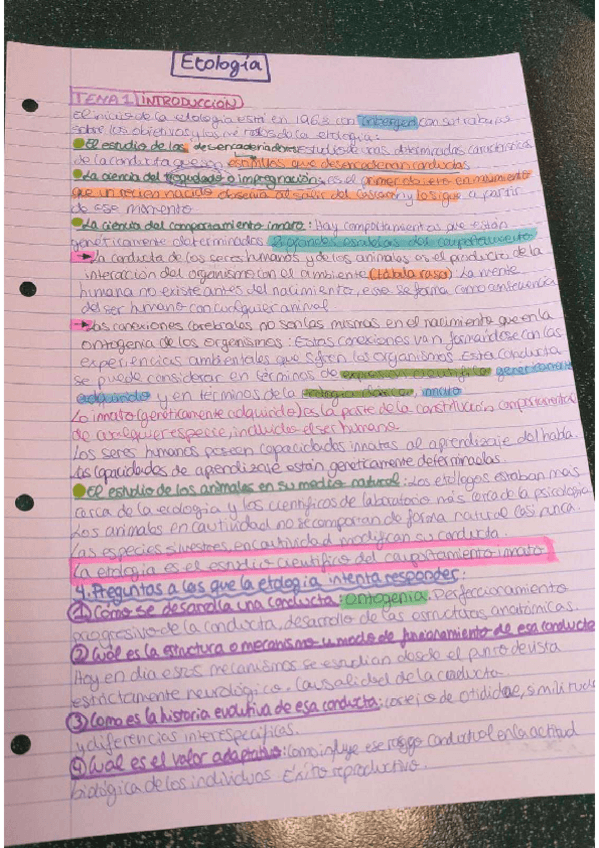 Etología
TEMA 1 INTRODUCCIÓN
El inicio de la etología está en 1963 con Tinbergen con sus trabajos
sobre los objetivos y los métodos de la etología:
El estudio de los desencadenadores: estudios de determinadas características
de la conducta que son estímulos que desencadenan conductas.
La ciencia del troquelado o impregnación: es el primer objeto en movimiento
que un recien nacido observa al salir del cascarón y lo sigue a partir
de ese momento
La ciencia del comportamiento innato: Hay comportamientos que están
genéticamente determinados. 2 grandes escuelas del comportamiento
La conducta de los seres humanos y de los animales es el producto de la
interacción del organismo con el ambiente (tábula rasa) La mente
humana no existe antes del nacimiento, ese se forma como consecuencia
del ser humano con cualquier animal
Las conexiones cerebrales no son las mismas en el nacimiento que en la
ontogenia de los organismos: Estas conexiones van formándose con las
experiencias ambientales que sufren los organismos Esta conducta
se puede considerar en términos de genéticamente
adquirido y en términos de la innato
Lo innato (genéticamente adquirido) es la parte de la constitución comportamental
de cualquier especie, incluido el ser humano
Los seres humanos poseen capacidades innatas al aprendizaje del habla.
Las capacidades de aprendizaje están genéticamente determinadas.
El estudio de los animales en su medio natural: Los etólogos estaban más
cerca de la ecología y los científicos de laboratorio más cerca de la psicología
Los animales en cautividad no se comportan de forma natural casi nunca.
Las especies silvestres, en cautividad modifican su conducta.
La etología es el estudio científico del comportamiento innato
4. Preguntas a las que la etología intenta responder:
1 Cómo se desarrolla una conducta: Ontogenia. Perfeccionamiento
progresivo de la conducta, desarrollo de las estructuras anatómicas.
2 Cuál es la estructura o mecanismo u modo de funcionamiento de esa conducta
Hoy en día esos mecanismos se estudian desde el punto de vista
estrictamente neurológico. Causalidad de la conducta.
3 Cómo es la historia evolutiva de esa conducta: cortejos de otididae, similitudes
y diferencias interespecíficas.
4 Cuál es el valor adaptativo: como influye ese rasgo conductual en la actitud
biológica de los individuos Éxito reproductivo.